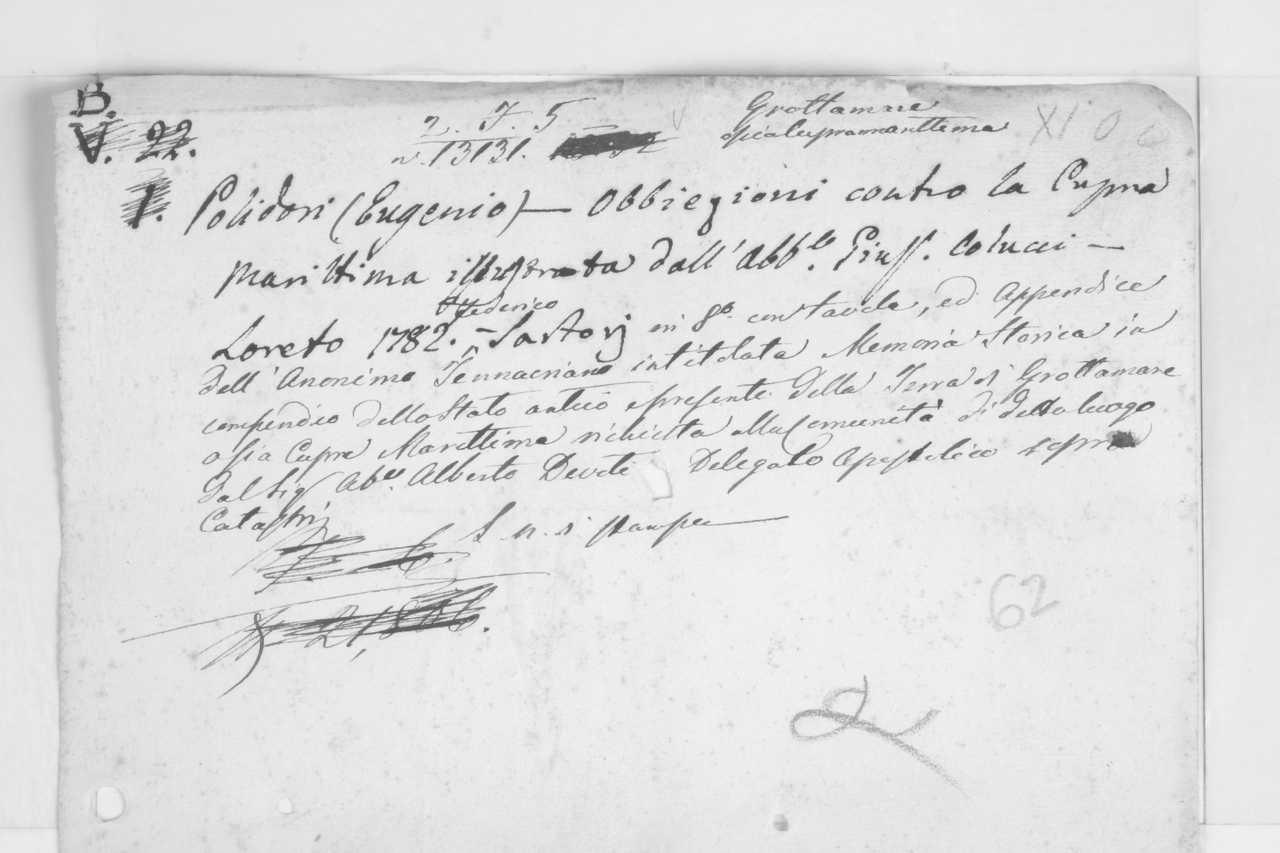 B.
V. 22.
2. 7. 5
n. 13131.
Grottamare
ossia Cupra marittima
XI 0
1. Polidori (Eugenio) — Obbiezioni contro la Cupra
Marittima illustrata dall' Abb.te Giuss. Colucci —
Federico
Loreto 1782. – Sartorj in 8.o con tavole, ed Appendice
dell' Anonimo intitolata Memoria Storica in
compendio dello Stato antico e presente della Terra di Grottamare
ossia Cupra Marittima richiesta alla Comunità di detto luogo
dal Sig. Ab.e Alberto Devoti Delegato Apostolico sopra
Catastri
S. n. di stampa
62